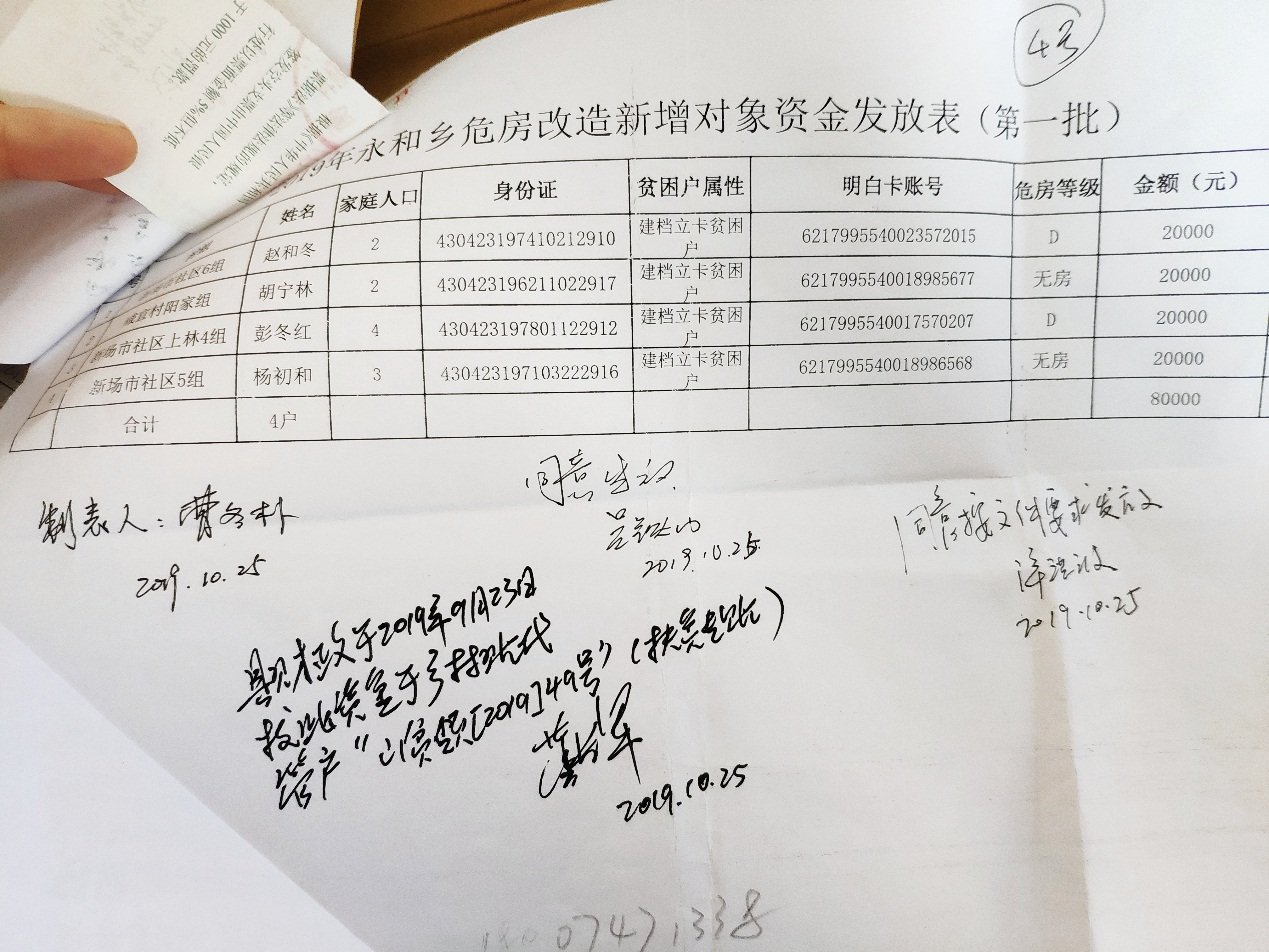 4号
19年永和乡危房改造新增对象资金发放表（第一批）
姓名 家庭人口 身份证 贫困户属性 明白卡账号 危房等级 金额（元）
1 社区6组 赵和冬 2 430423197410212910 建档立卡贫困户 6217995540023572015 D 20000
2 村阳家组 胡宁林 2 430423196211022917 建档立卡贫困户 6217995540018985677 无房 20000
3 新场市社区上林4组 彭冬红 4 430423197801122912 建档立卡贫困户 6217995540017570207 D 20000
4 新场市社区5组 杨初和 3 430423197103222916 建档立卡贫困户 6217995540018986568 无房 20000
合计 4户 80000
制表人：曹冬朴
2019.10.25
同意发放
2019.10.25
同意按文件要求发放
2019.10.25
县财政于2019年9月23日
拨此资金于乡村
[2019]49号"
2019.10.25
根据《中华人民
票据法》等法律法规的规定,
签发空头支票由中国人民银
行处以票面金额5%但不低
于1000元的罚款